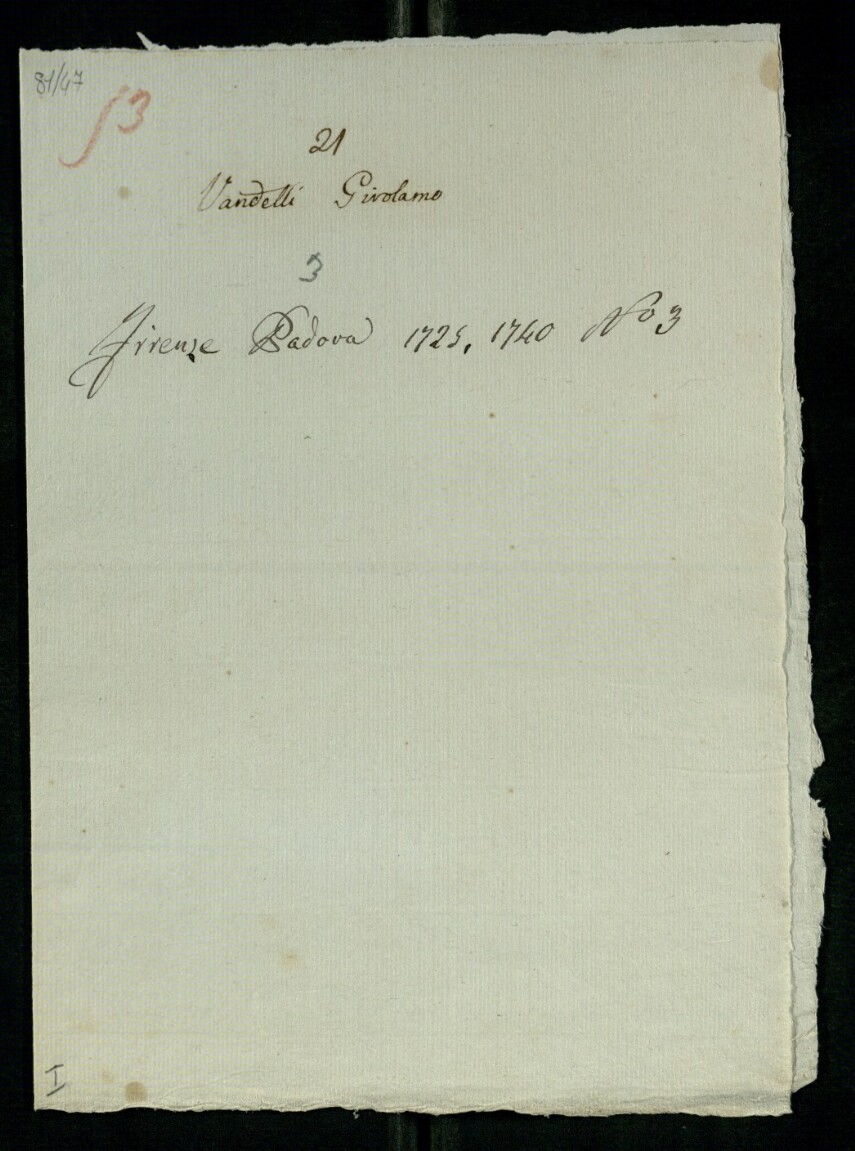 81/47
f 3
21
Vandelli Girolamo
3
Firenze Padova 1725, 1740 No 3
I